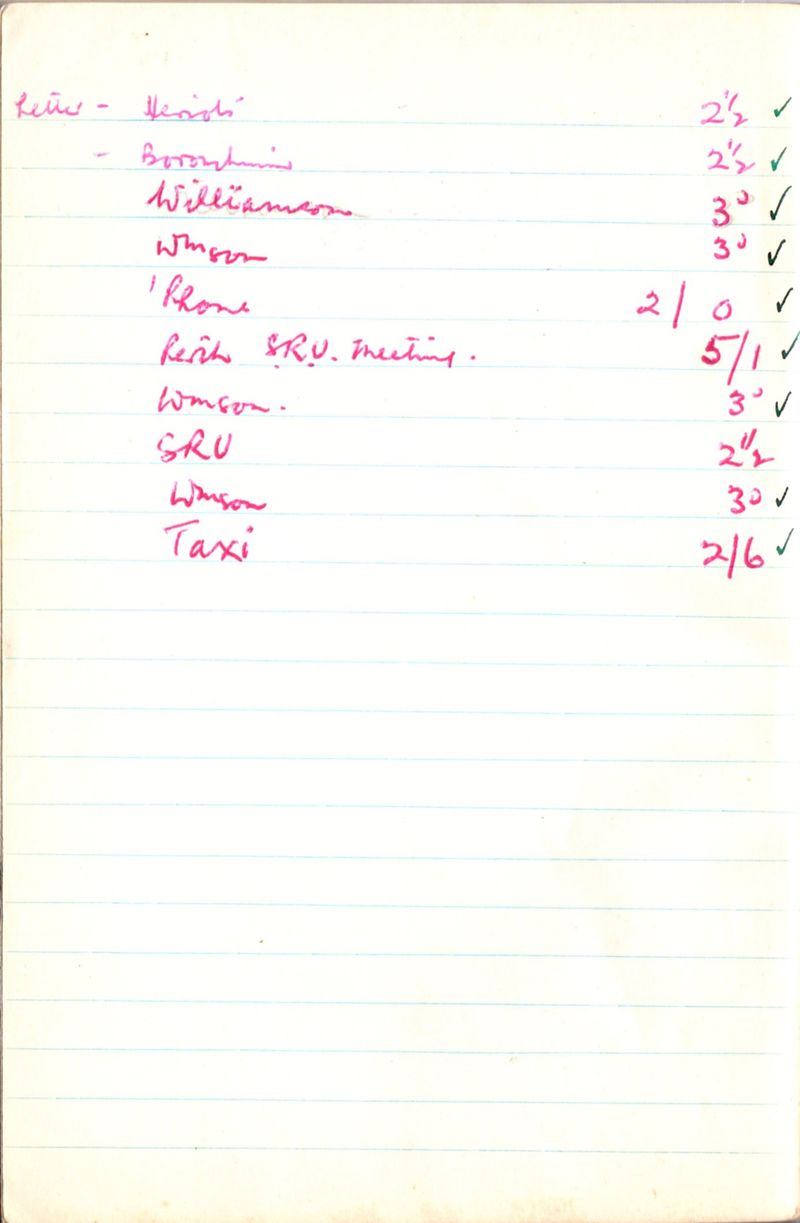 Letter - Heriots 2½ ✓
- Boroughmuir 2½ ✓
Williamson 3ᴰ ✓
Wmson 3ᴰ ✓
'Phone 2/0 ✓
Perth S.R.U. Meeting. 5/1 ✓
Wmson. 3ᴰ ✓
SRU 2½
Wmson 3ᴰ ✓
Taxi 2/6 ✓